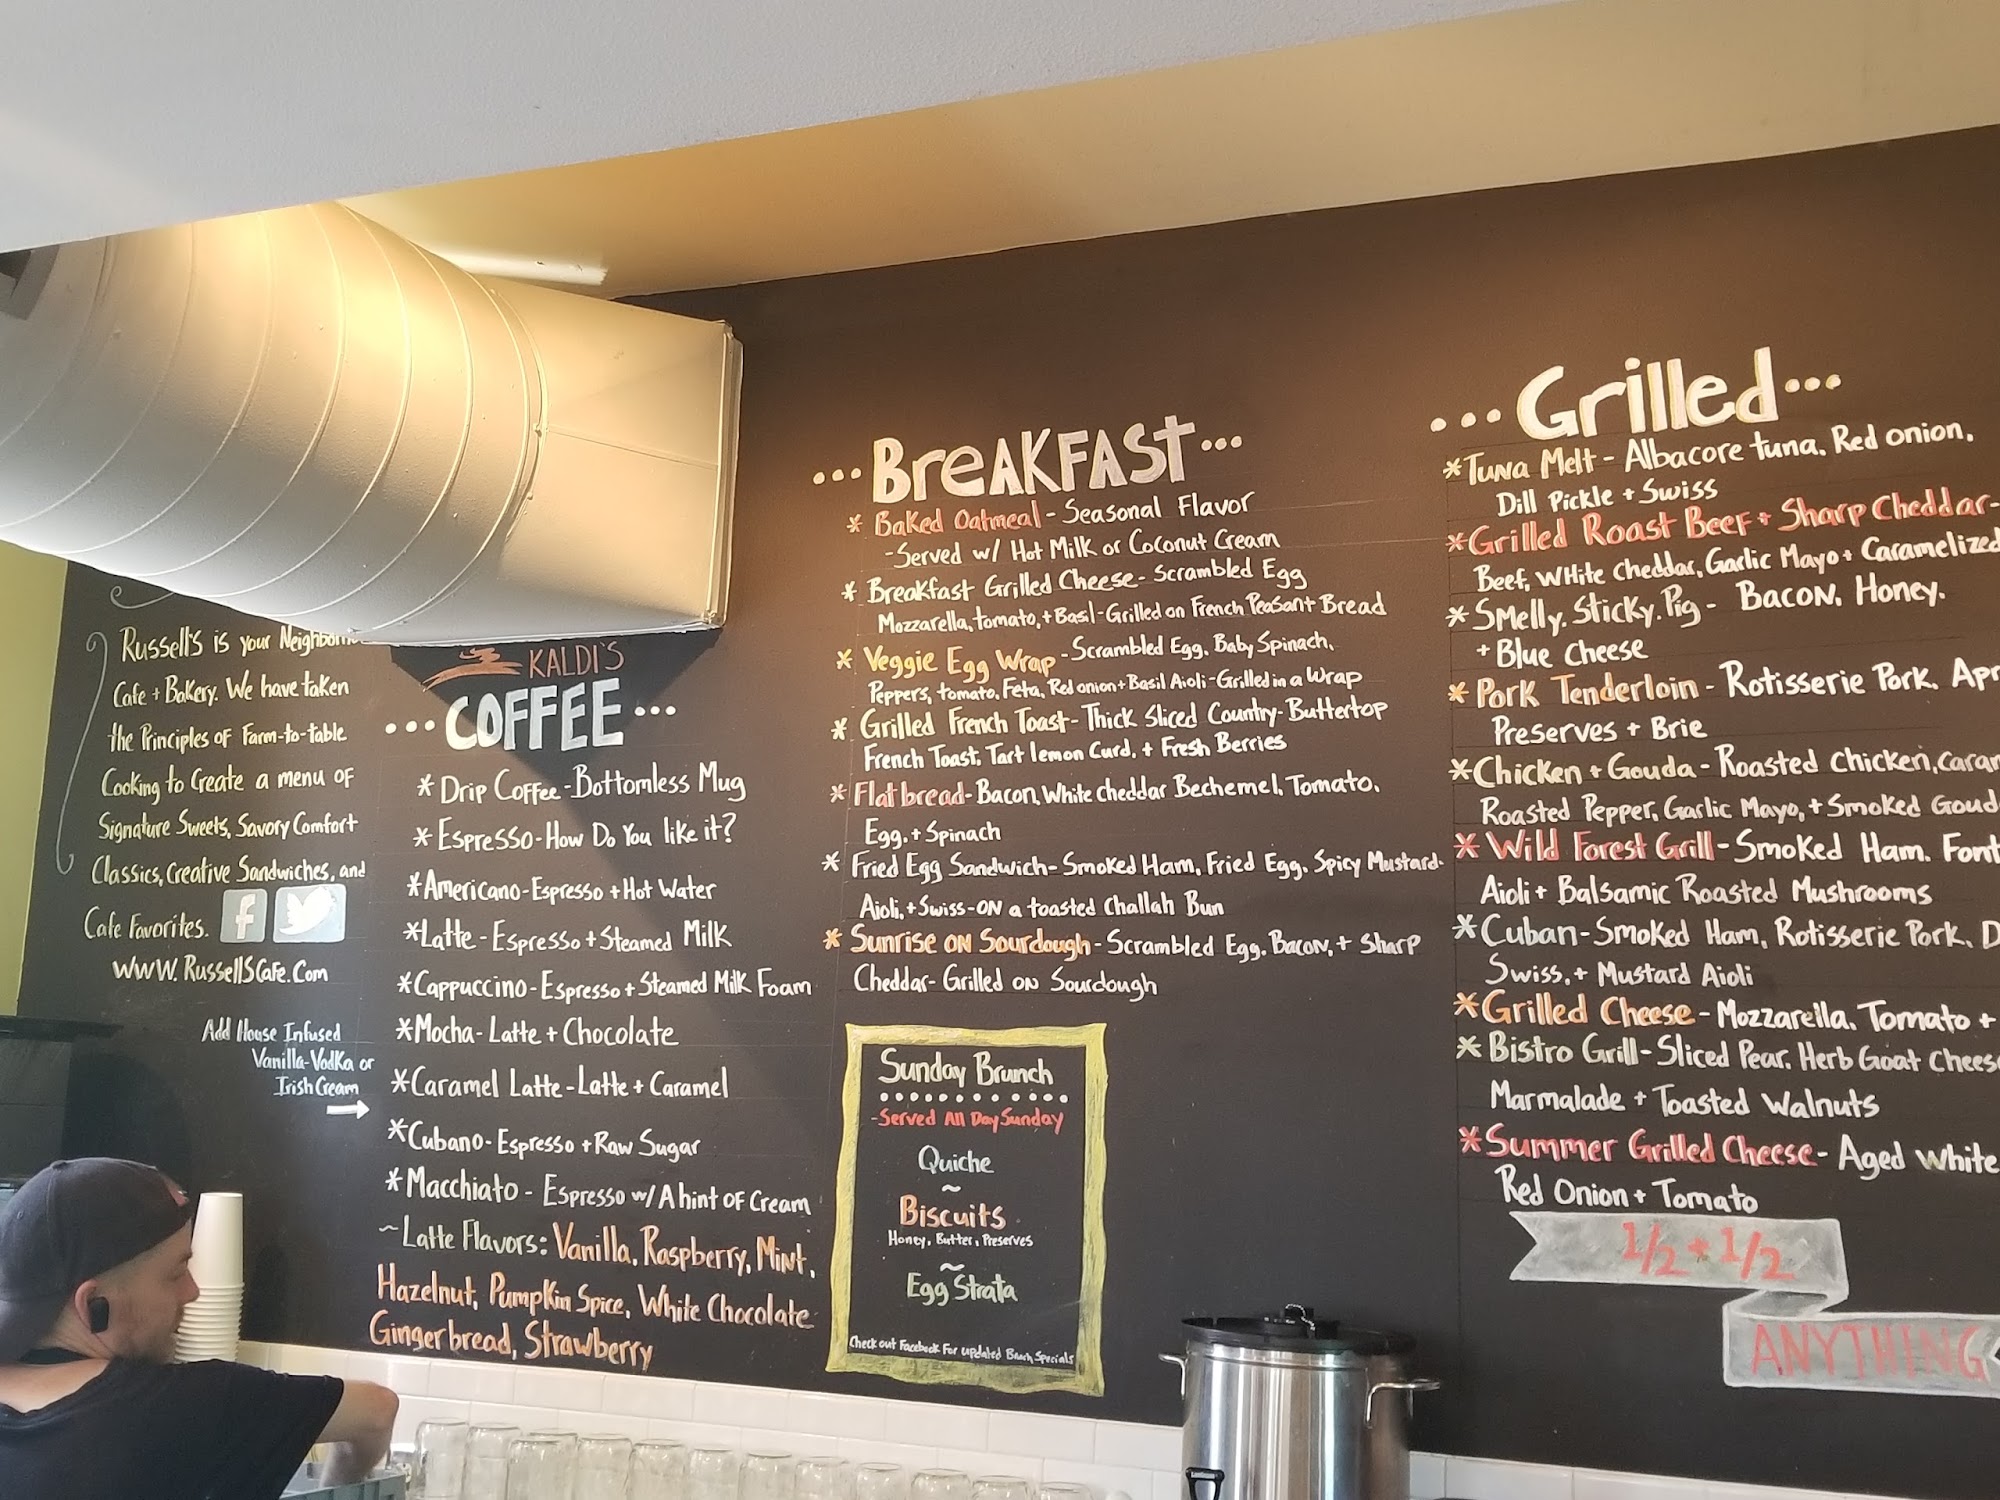 Russell's is your
Cafe + Bakery. We have taken
the Principles of Farm-to-table
Cooking to Create a menu of
Signature Sweets, Savory Comfort
Classics, Creative Sandwiches, and
Cafe Favorites.
f
WWW.RussellSCafe.Com
Add House Infused
Vanilla-Vodka or
Irish Cream
KALDI'S
...COFFEE...
*Drip Coffee-Bottomless Mug
*Espresso-How Do You like it?
*Americano-Espresso + Hot Water
*Latte-Espresso + Steamed Milk
*Cappuccino-Espresso + Steamed Milk Foam
*Mocha-Latte + Chocolate
*Caramel Latte-Latte + Caramel
*Cubano-Espresso + Raw Sugar
*Macchiato - Espresso w/ A hint of Cream
~Latte Flavors: Vanilla, Raspberry, Mint,
Hazelnut, Pumpkin Spice, White Chocolate
Gingerbread, Strawberry
...BreAKFASt...
* Baked Oatmeal - Seasonal Flavor
-Served w/ Hot Milk or Coconut Cream
* Breakfast Grilled Cheese-Scrambled Egg
Mozzarella, tomato, + Basil-Grilled on French Peasant Bread
* Veggie Egg Wrap -Scrambled Egg, Baby Spinach,
Peppers, tomato, Feta, Red onion + Basil Aioli-Grilled in a Wrap
* Grilled French Toast-Thick Sliced Country-Buttertop
French Toast, Tart lemon Curd, + Fresh Berries
* Flatbread-Bacon, White cheddar Bechemel, Tomato,
Egg, + Spinach
* Fried Egg Sandwich-Smoked Ham, Fried Egg, Spicy Mustard-
Aioli, + Swiss-ON a toasted Challah Bun
* Sunrise ON Sourdough-Scrambled Egg, Bacon, + Sharp
Cheddar-Grilled ON Sourdough
Sunday Brunch
-Served All Day Sunday
Quiche
~
Biscuits
Honey, Butter, Preserves
~
Egg Strata
Check out Facebook For updated Brunch Specials
...Grilled...
*Tuna Melt - Albacore tuna, Red onion,
Dill Pickle + Swiss
*Grilled Roast Beef + Sharp Cheddar-
Beef, White cheddar, Garlic Mayo + Caramelized
* Smelly. Sticky. Pig - Bacon, Honey,
+ Blue Cheese
*Pork Tenderloin - Rotisserie Pork, Apr
Preserves + Brie
*Chicken + Gouda - Roasted Chicken, Caram
Roasted Pepper, Garlic Mayo, + Smoked Goud
* Wild Forest Grill-Smoked Ham, Font
Aioli + Balsamic Roasted Mushrooms
*Cuban-Smoked Ham, Rotisserie Pork, D
Swiss, + Mustard Aioli
*Grilled Cheese - Mozzarella, Tomato +
*Bistro Grill-Sliced Pear, Herb Goat Chees
Marmalade + Toasted Walnuts
*Summer Grilled Cheese - Aged White
Red Onion + Tomato
1/2 + 1/2
ANYTHING